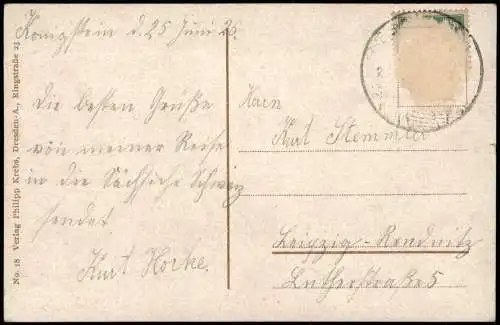 Königstein d. 25 Juni 25
Die besten Grüße
von meiner Reise
in die Sächsiche Schweiz
sendet
Kurt Horke.
Herrn
Kurt Stemmler
Leipzig-Reudnitz
Lutherstraße 5
No. 18 Verlag Philipp Krebs, Dresden-A., Ringstraße 23